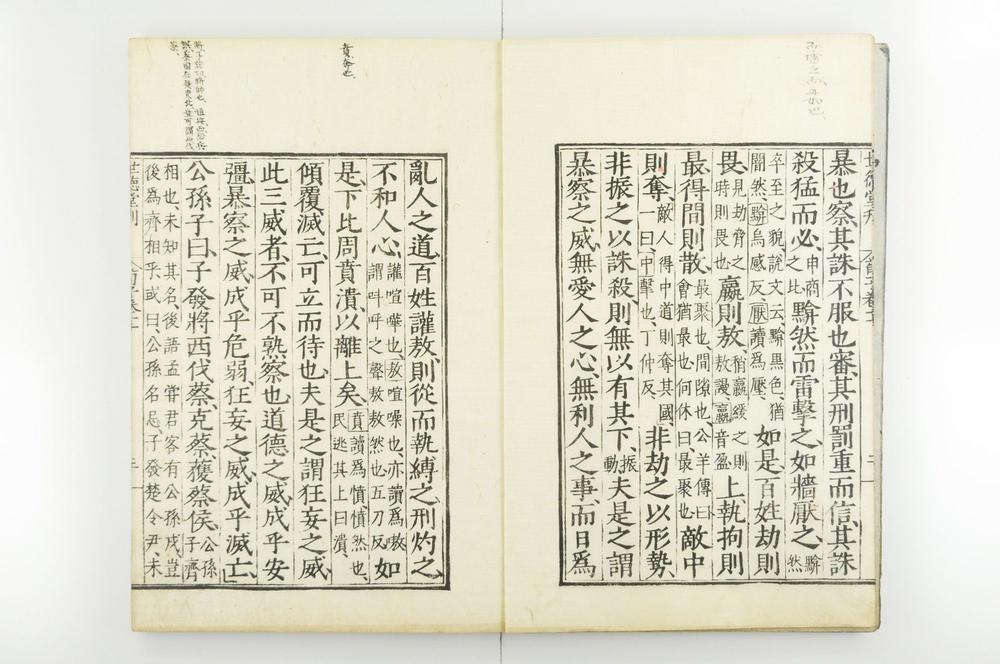 暴也察其誅不服也審其刑罰重而信其誅
殺猛而必申商之比黭然而雷擊之如牆厭之黭然
卒至之貌說文云黭黑色猶闇然黭烏感反厭讀爲壓如是百姓劫則
畏見劫脅之時則畏也嬴則敖稍嬴緩之則敖謾嬴音盈上執拘則
最得間則散最聚也間隙也公羊傳曰會猶最也何休曰最聚也敵中
則奪敵人得中道則奪其國一曰中擊也丁仲反非劫之以形勢
非振之以誅殺則無以有其下振動夫是之謂
暴察之威無愛人之心無利人之事而日爲
賁奔也
亂人之道百姓讙敖則從而執縛之刑灼之
不和人心讙喧嘩也敖喧噪也亦讀爲嗷謂呌呼之聲嗷嗷然也五刀反如
是下比周賁潰以離上矣賁讀爲憤憤然也民逃其上曰潰
傾覆滅亡可立而待也夫是之謂狂妄之威
此三威者不可不熟察也道德之威成乎安
彊暴察之威成乎危弱狂妄之威成乎滅亡
公孫子曰子發將西伐蔡克蔡獲蔡侯公孫子齊
相也未知其名後語孟甞君客有公孫戌豈
後爲齊相乎或曰公孫名忌子發楚令尹未
世德堂刊